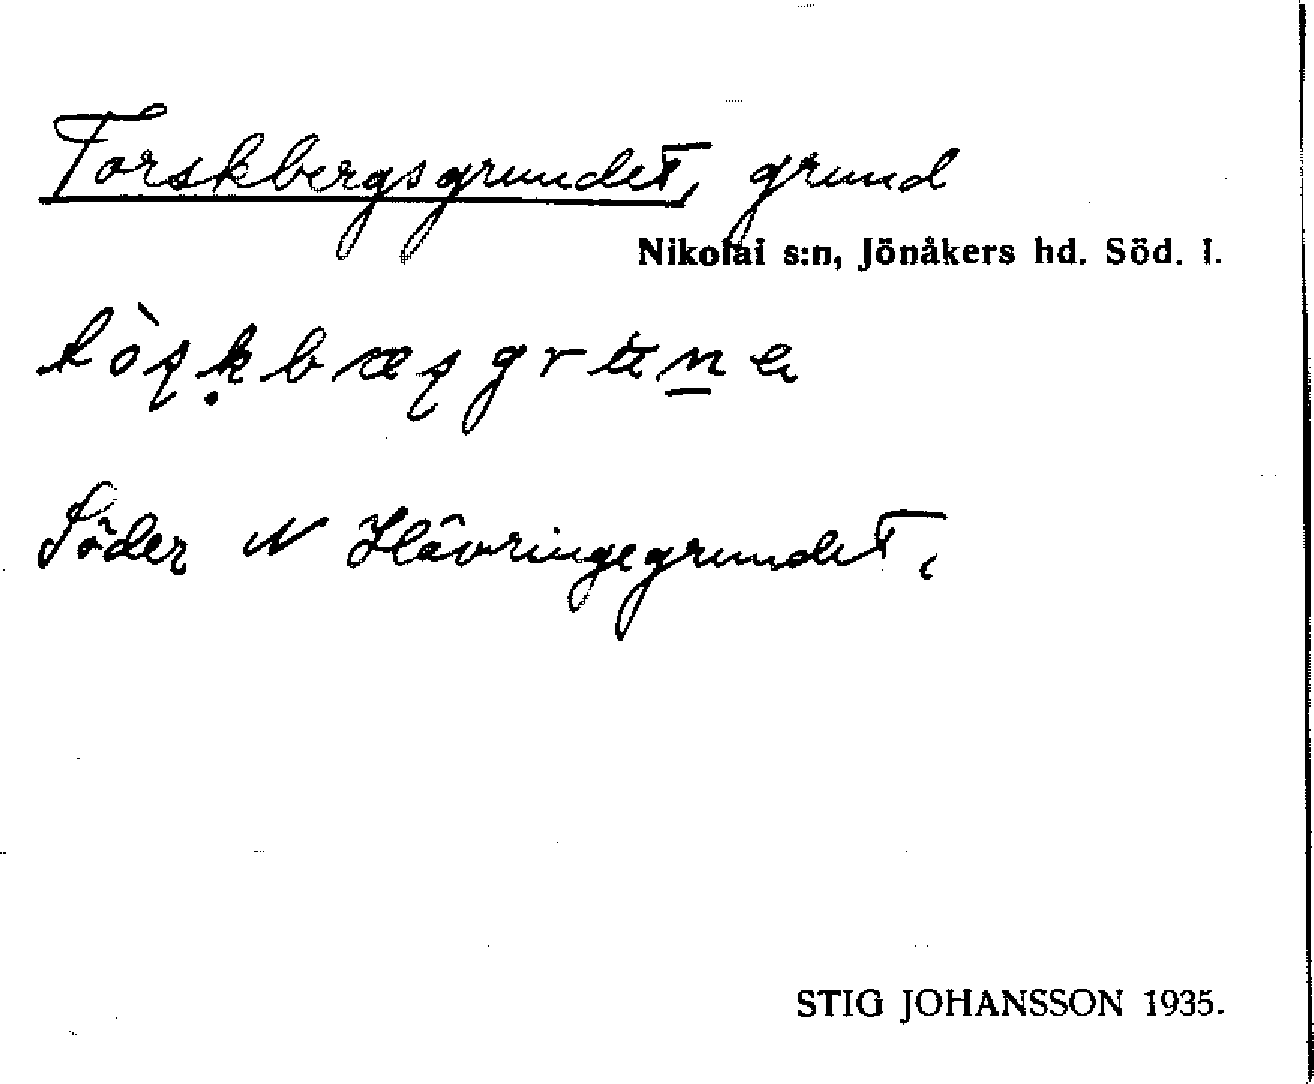 Torskbergsgrundet, grund
Nikolai s:n, Jönåkers hd. Söd. l.
Söder N Hävringegrundet,
STIG JOHANSSON 1935.